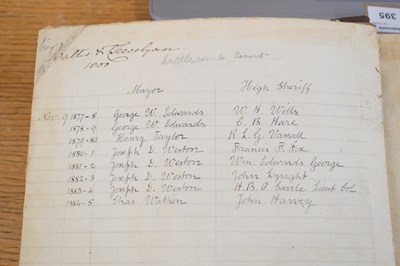 395
Watts &
1800
Mayor High Sheriff
Nov. 9 1877-8 George W. Edwards W. H. Wills
1878-9 George W. Edwards C. B. Hare
1879-80 Henry Taylor R. L. G. Vassall
1880-1 Joseph D. Weston Francis F. Fox
1881-2 Joseph D. Weston Wm. Edwards George
1882-3 Joseph D. Weston John Lysaght
1883-4 Joseph D. Weston H. B. O. Savile Lieut Col
1884-5 Chas. Wathen John Harvey